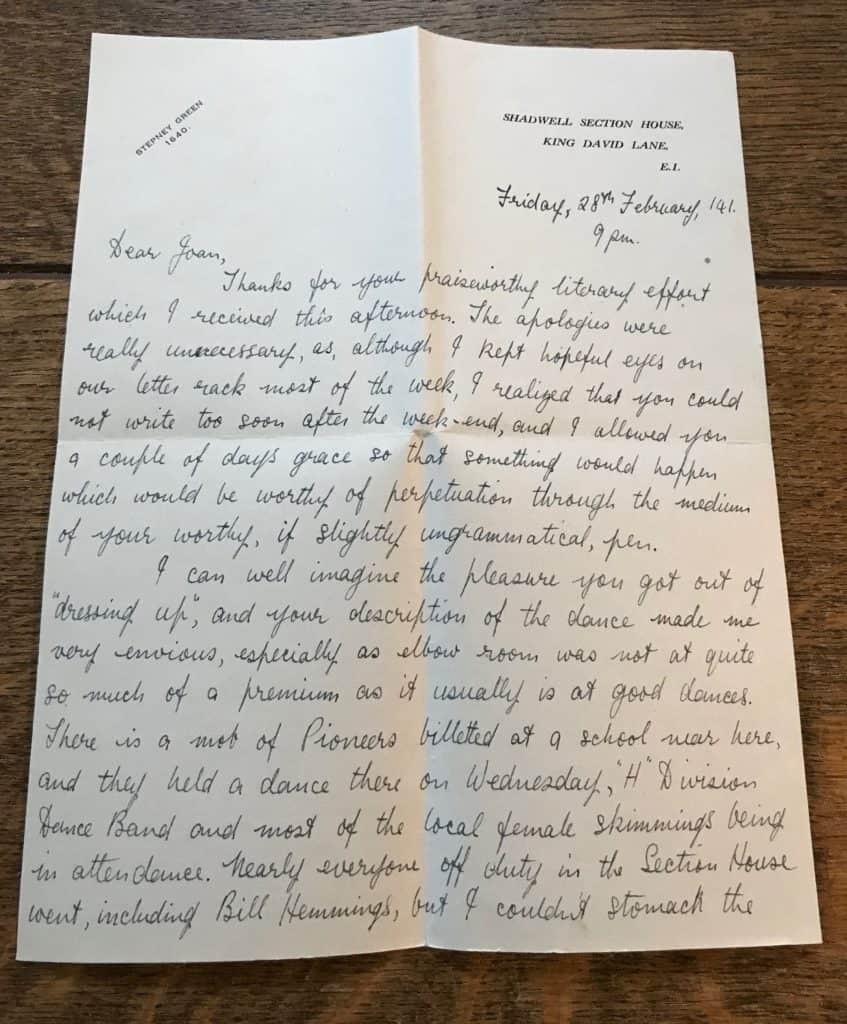 STEPNEY GREEN
1640.
SHADWELL SECTION HOUSE,
KING DAVID LANE,
E.1.
Friday, 28th February, '41.
9 pm.
Dear Joan,
Thanks for your praiseworthy literary effort
which I received this afternoon. The apologies were
really unnecessary, as, although I kept hopeful eyes on
our letter rack most of the week, I realized that you could
not write too soon after the week-end, and I allowed you
a couple of days grace so that something would happen
which would be worthy of perpetuation through the medium
of your worthy, if slightly ungrammatical, pen.
I can well imagine the pleasure you got out of
"dressing up", and your description of the dance made me
very envious, especially as elbow room was not at quite
so much of a premium as it usually is at good dances.
There is a mob of Pioneers billetted at a school near here,
and they held a dance there on Wednesday, "H" Division
Dance Band and most of the local female skimmings being
in attendance. Nearly everyone off duty in the Section House
went, including Bill Hemmings, but I couldn't stomack the